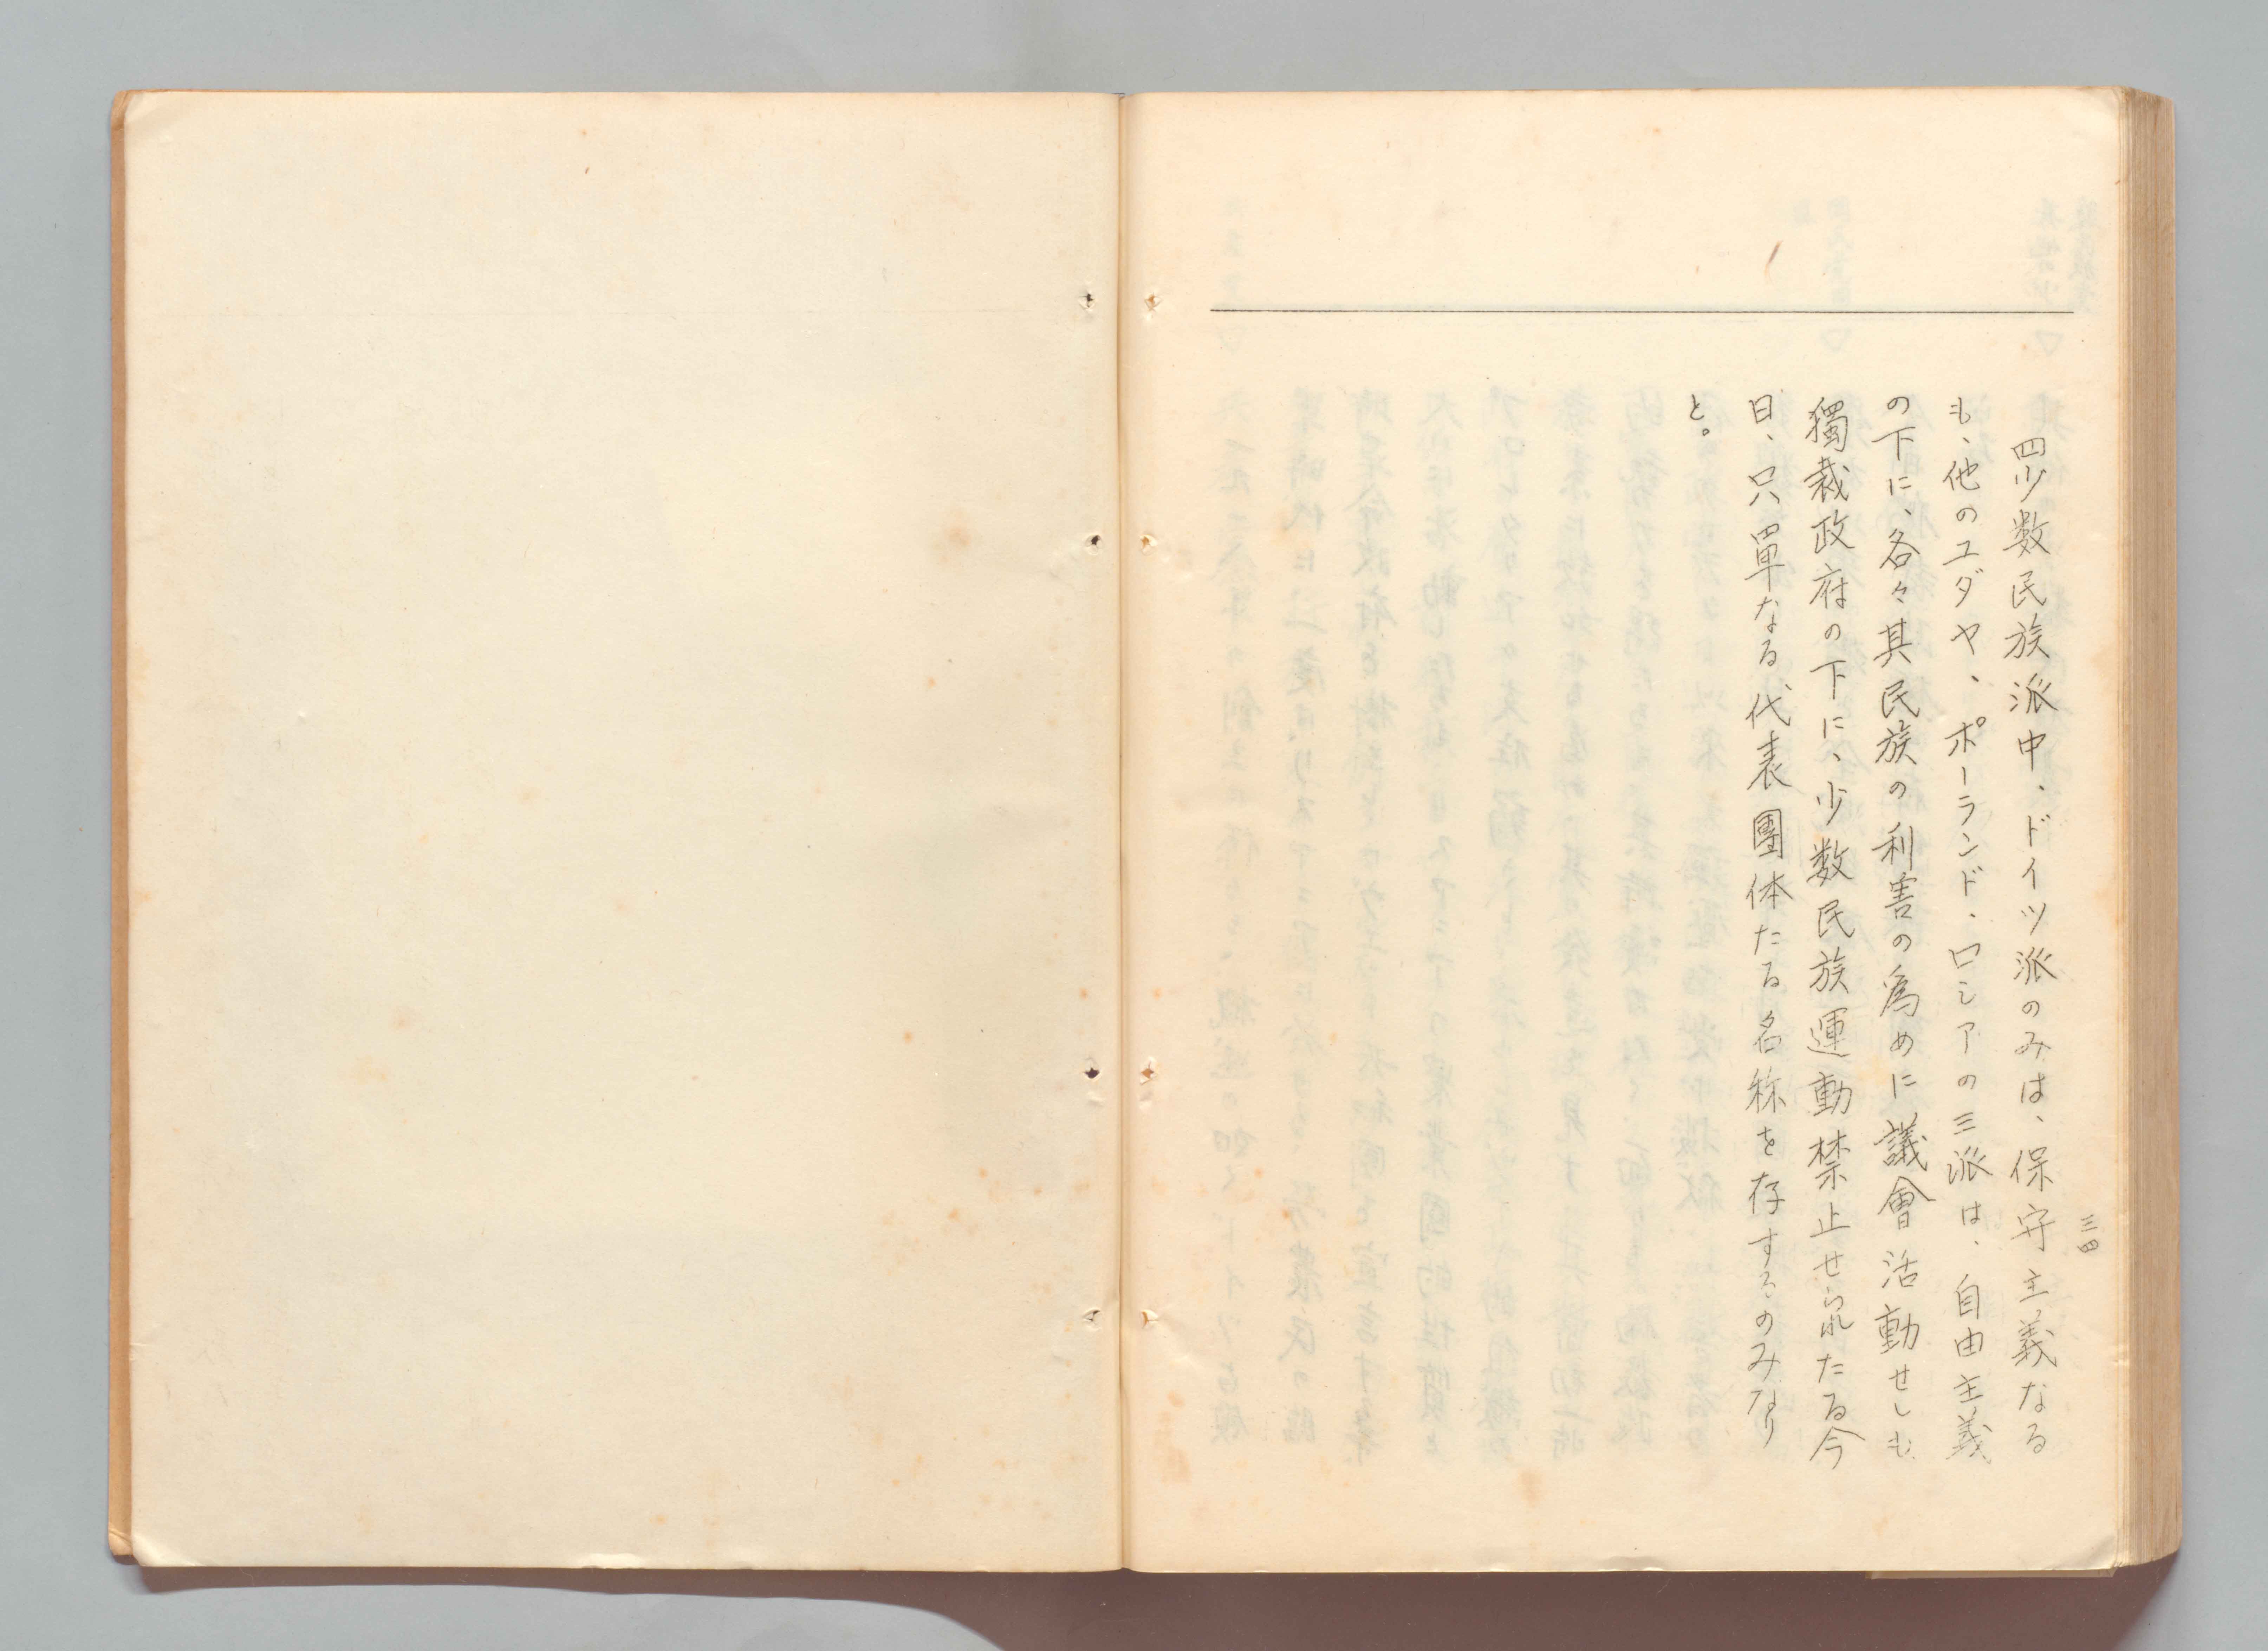 三四
四少数民族派中、ドイツ派のみは、保守主義なる
も、他のユダヤ、ポーランド、ロシアの三派は、自由主義
の下に、各々其民族の利害の為めに議會活動せしも
獨裁政府の下に、少数民族運動禁止せられたる今
日、只單なる代表團体たる名称を存するのみなり
と。